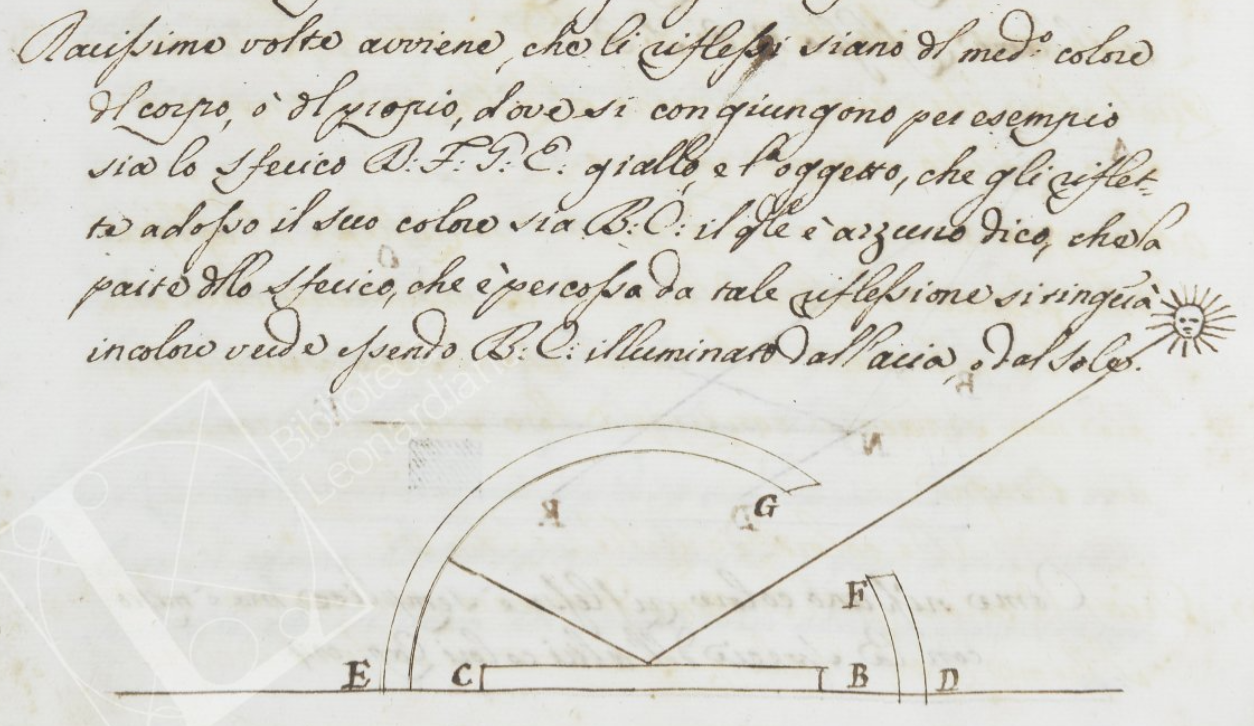 Rarissime volte avviene, che li riflessi siano dl med.º colore
dl corpo, ò dl propio, dove si congiungono per esempio
sia lo sferico D: F: G: E: giallo, e l'oggetto, che gli riflet-
te adosso il suo colore sia B: C: il qle è azzurro dico, che la
parte dllo sferico, che è percossa da tale riflessione si tingerà
in colore verde essendo B: C: illuminato dall'aria, o dal sole.
Biblioteca
Leonardiana
G
F
E C B D